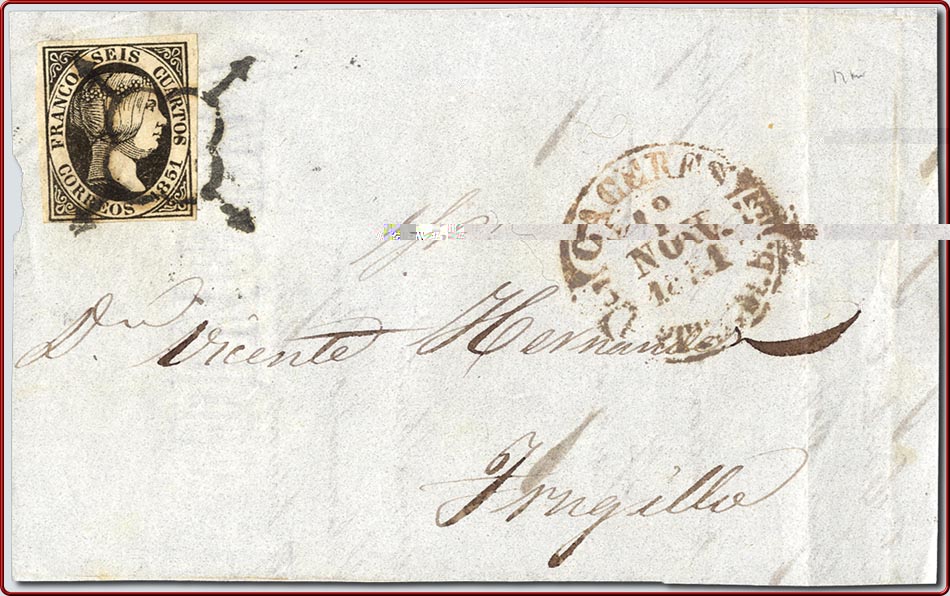 FRANCO SEIS CUARTOS
CORREOS 1851
CACERES
NOV.
1851
Dn Vicente Hernandez
Trugillo